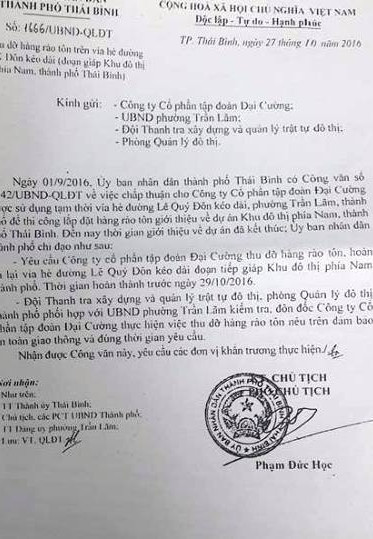 THÀNH PHỐ THÁI BÌNH
CỘNG HOÀ XÃ HỘI CHỦ NGHĨA VIỆT NAM
Độc lập - Tự do - Hạnh phúc
Số: 1666/UBND-QLĐT
TP. Thái Bình, ngày 27 tháng 10 năm 2016
dỡ hàng rào tôn trên vỉa hè đường
Đôn kéo dài (đoạn giáp Khu đô thị
phía Nam, thành phố Thái Bình)
Kính gửi: - Công ty Cổ phần tập đoàn Đại Cường;
- UBND phường Trần Lãm;
- Đội Thanh tra xây dựng và quản lý trật tự đô thị;
- Phòng Quản lý đô thị.
Ngày 01/9/2016, Ủy ban nhân dân thành phố Thái Bình có Công văn số
42/UBND-QLĐT về việc chấp thuận cho Công ty Cổ phần tập đoàn Đại Cường
sử dụng tạm thời vỉa hè đường Lê Quý Đôn kéo dài, phường Trần Lãm, thành
để thi công lắp đặt hàng rào tôn giới thiệu về dự án Khu đô thị phía Nam, thành
Thái Bình. Đến nay thời gian giới thiệu về dự án đã kết thúc; Ủy ban nhân dân
phố chỉ đạo như sau:
- Yêu cầu Công ty cổ phần tập đoàn Đại Cường thu dỡ hàng rào tôn, hoàn
lại vỉa hè đường Lê Quý Đôn kéo dài đoạn tiếp giáp Khu đô thị phía Nam
thành phố. Thời gian hoàn thành trước ngày 29/10/2016.
- Đội Thanh tra xây dựng và quản lý trật tự đô thị, phòng Quản lý đô thị
thành phố phối hợp với UBND phường Trần Lãm kiểm tra, đôn đốc Công ty Cổ
phần tập đoàn Đại Cường thực hiện việc thu dỡ hàng rào tôn nêu trên đảm bảo
an toàn giao thông và đúng thời gian yêu cầu.
Nhận được Công văn này, yêu cầu các đơn vị khẩn trương thực hiện./.
Nơi nhận:
Như trên;
TT Thành ủy Thái Bình;
Chủ tịch, các PCT UBND Thành phố;
TT Đảng ủy phường Trần Lãm;
Lưu: VT, QLĐT
CHỦ TỊCH
CHỦ TỊCH
Phạm Đức Học